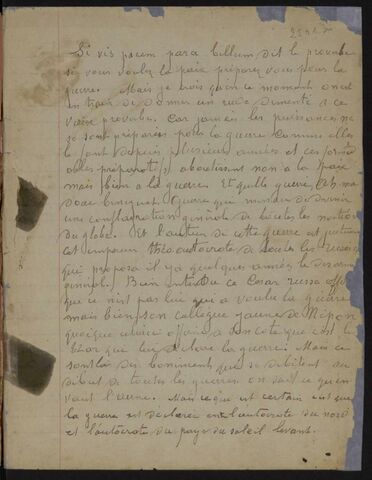 Si vis pacem para bellum dit le proverbe
si vous voulez la paix préparez vous pour la
guerre. Mais je crois qu'en ce moment on est
en train de donner un rude démenti à ce
vieux proverbe. Car jamais les puissances ne
se sont préparées pour la guerre comme elles
le font depuis plusieurs années et ces
préparatifs aboutissent non à la paix
mais bien à la guerre. Et quelle guerre, Oh ma
doué Guerre qui menace de devenir
une conflagration général de toutes les nations
du globe. Et l'auteur de cette guerre est justement
cet empereur théo autocrate de toutes les russies
qui proposa il y a quelques années le désarm
général. Bien entendu ce Czar russe
que ce n'est pas lui qui a voulu la guerre
mais bien son collègue jaune de
quoique celui ci à son côté que c'est le
Czar qui lui déclare la guerre. Mais ce
sont là des boniments qui se débitent au
début de toutes les guerres on sait ce qu'en
vaut l'aune. Mais ce qui est certain c'est que
la guerre est déclarée entre l'autocrate du nord
et l'autocrate du pays du soleil levant.